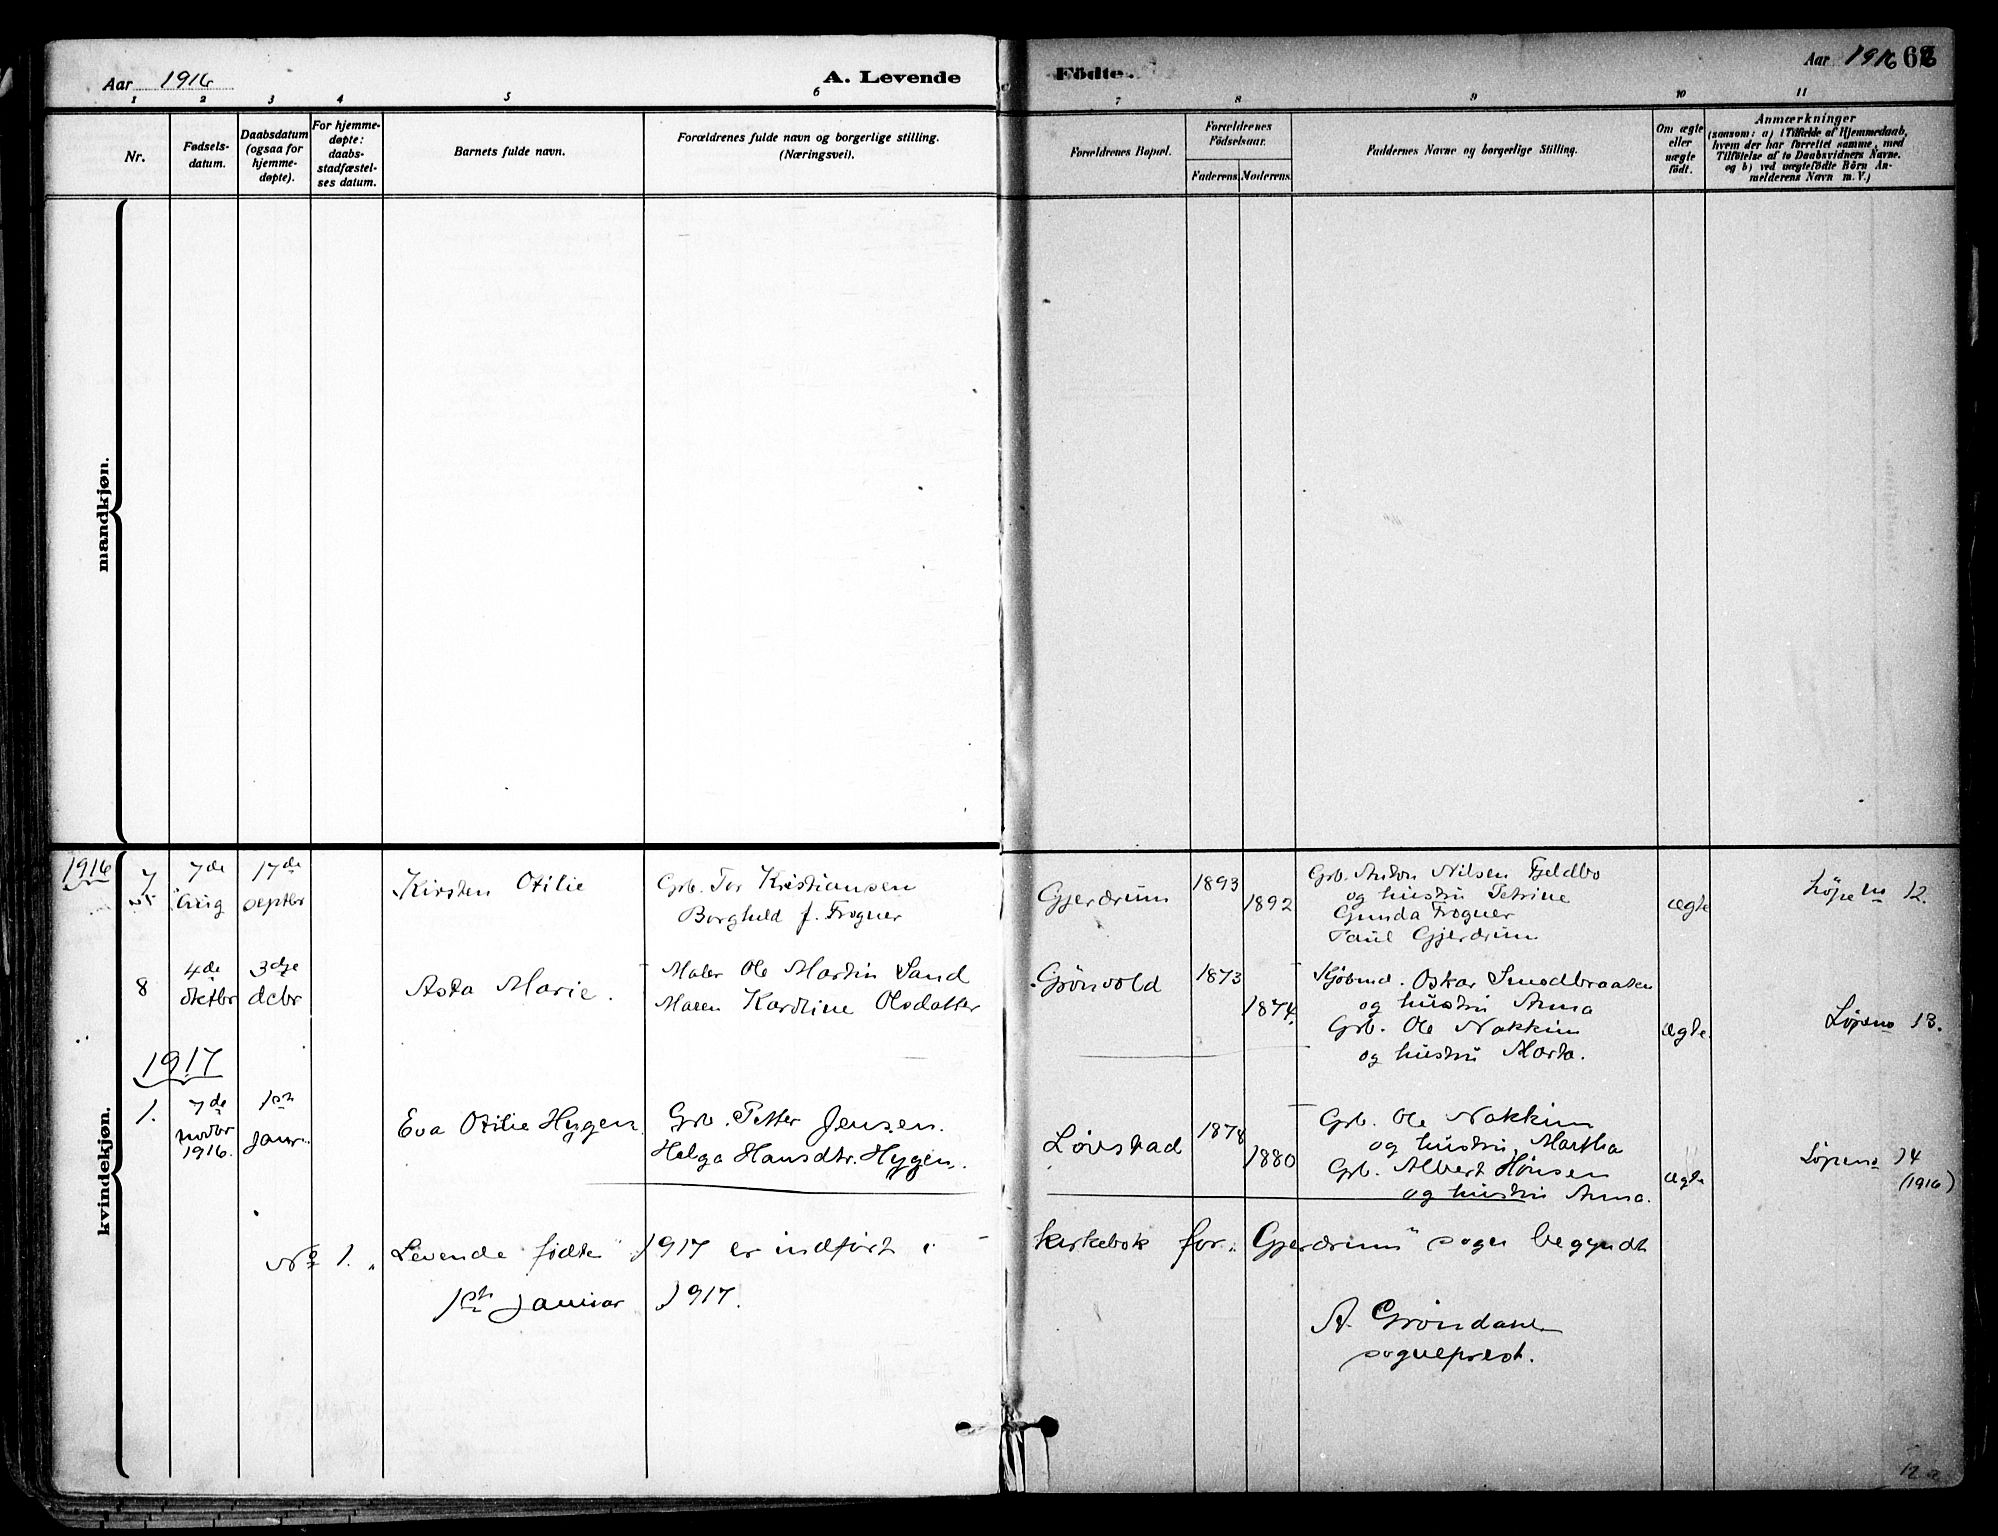 Aar 1916
A. Levende
Födte.
Aar 1916
1 2 3 4 5 6
7 8 9 10 11
Nr.
Fødsels-
datum.
Daabsdatum
(ogsaa for
hjemme-
døpte).
For hjemme-
døpte:
daabs-
stadfæstel-
ses datum.
Barnets fulde navn.
Forældrenes fulde navn og borgerlige stilling.
(Næringsvei).
Forældrenes Bopæl.
Forældrenes
Födselsaar.
Faderens. Moderens.
Faddernes Navne og borgerlige Stilling.
Om ægte
eller
uægte
født.
Anmærkninger
(saasom: a) i Tilfælde af Hjemmedaab,
hvem der har forrettet samme, med
Tilföielse af to Daabsvidners Navne.
og b) ved uægtefödte Börn An-
melderens Navn m. V.)
mandkjøn.
kvindekjøn.
1916
7
7de
aug
17de
septbr
Kirsten Otilie
Grb. Tor Kristiansen
Borghild f. Frogner
Gjerdrum
1893
1892
Grb. Anton Nilsen Fjeldbo
og hustru Petrine
Gunda Frogner
Paul Gjerdrum
ægte
Løpeno 12.
8
4de
oktbr
3dje
debr
Asta Marie.
Maler Ole Martin Sand
Maren Karoline Olsdatter
Grönvold
1873
1874.
Kjøbmd. Oskar Smedbraaten
og hustru Anna
Grb. Ole Nakkim
og hustru Marta.
ægte.
Løpeno 13.
1917
1.
7de
novbr
1916.
1ste
janr.
Eva Otilie Hygen.
Grb. Petter Jensen.
Helga Hansdtr. Hygen.
Lövstad
1878
1880
Grb. Ole Nakkim
og hustru Martha
Grb. Albert Hönsen
og hustru Anna.
ægte
Løpeno 14
(1916)
No 1. „Levende fødte" 1917 er indført i kirkebok for „Gjerdrum" sogn begyndt
1ste januar 1917.
A. Gröndahl
sogneprest.